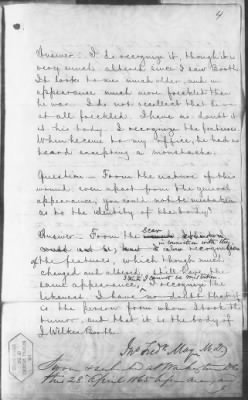 4
Answer: I do recognize it, though it is
very much altered since I saw Booth.
It looks to me much older, and in
appearance much more freckled than
he was. I do not recollect that he was
at all freckled. I have no doubt it
is his body. I recognize the features.
When he came to my office, he had no
beard excepting a moustache.
Question — From the nature of this
wound, even apart from the general
appearance, you could not be mistaken
as to the identity of the body?
scar
Answer — From the
in connection with the
of the features, which though much
changed and altered, still have the
I think I cannot be mistaken.
same appearance, I recognize the
likeness. I have no doubt that it
is the person from whom I took the
tumor, and that it is the body of
J. Wilkes Booth.
Jno Fredk May M.D.
Sworn
this 28 April 1865